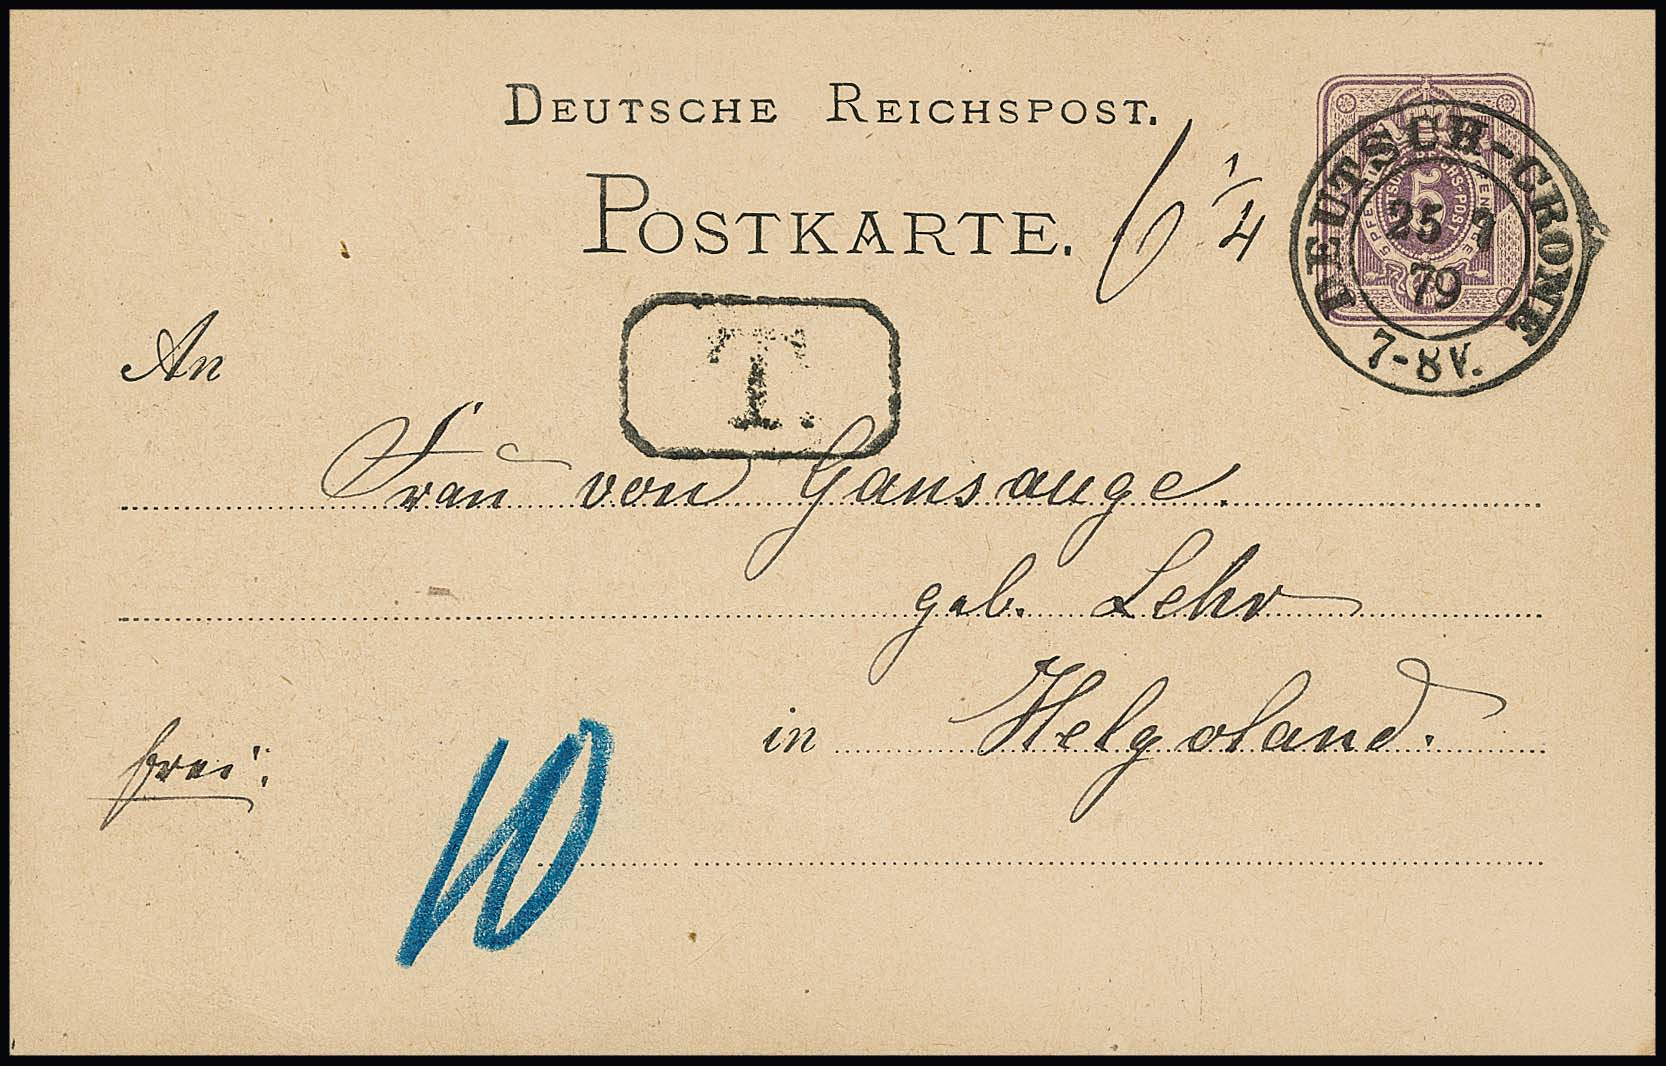 DEUTSCHE REICHSPOST.
POSTKARTE.
6 1/4
DEUTSCH-CRONE
25 7
79
7-8V.
5
T.
An
Frau von Gansauge.
geb. Lehr
in Helgoland.
frei.
10